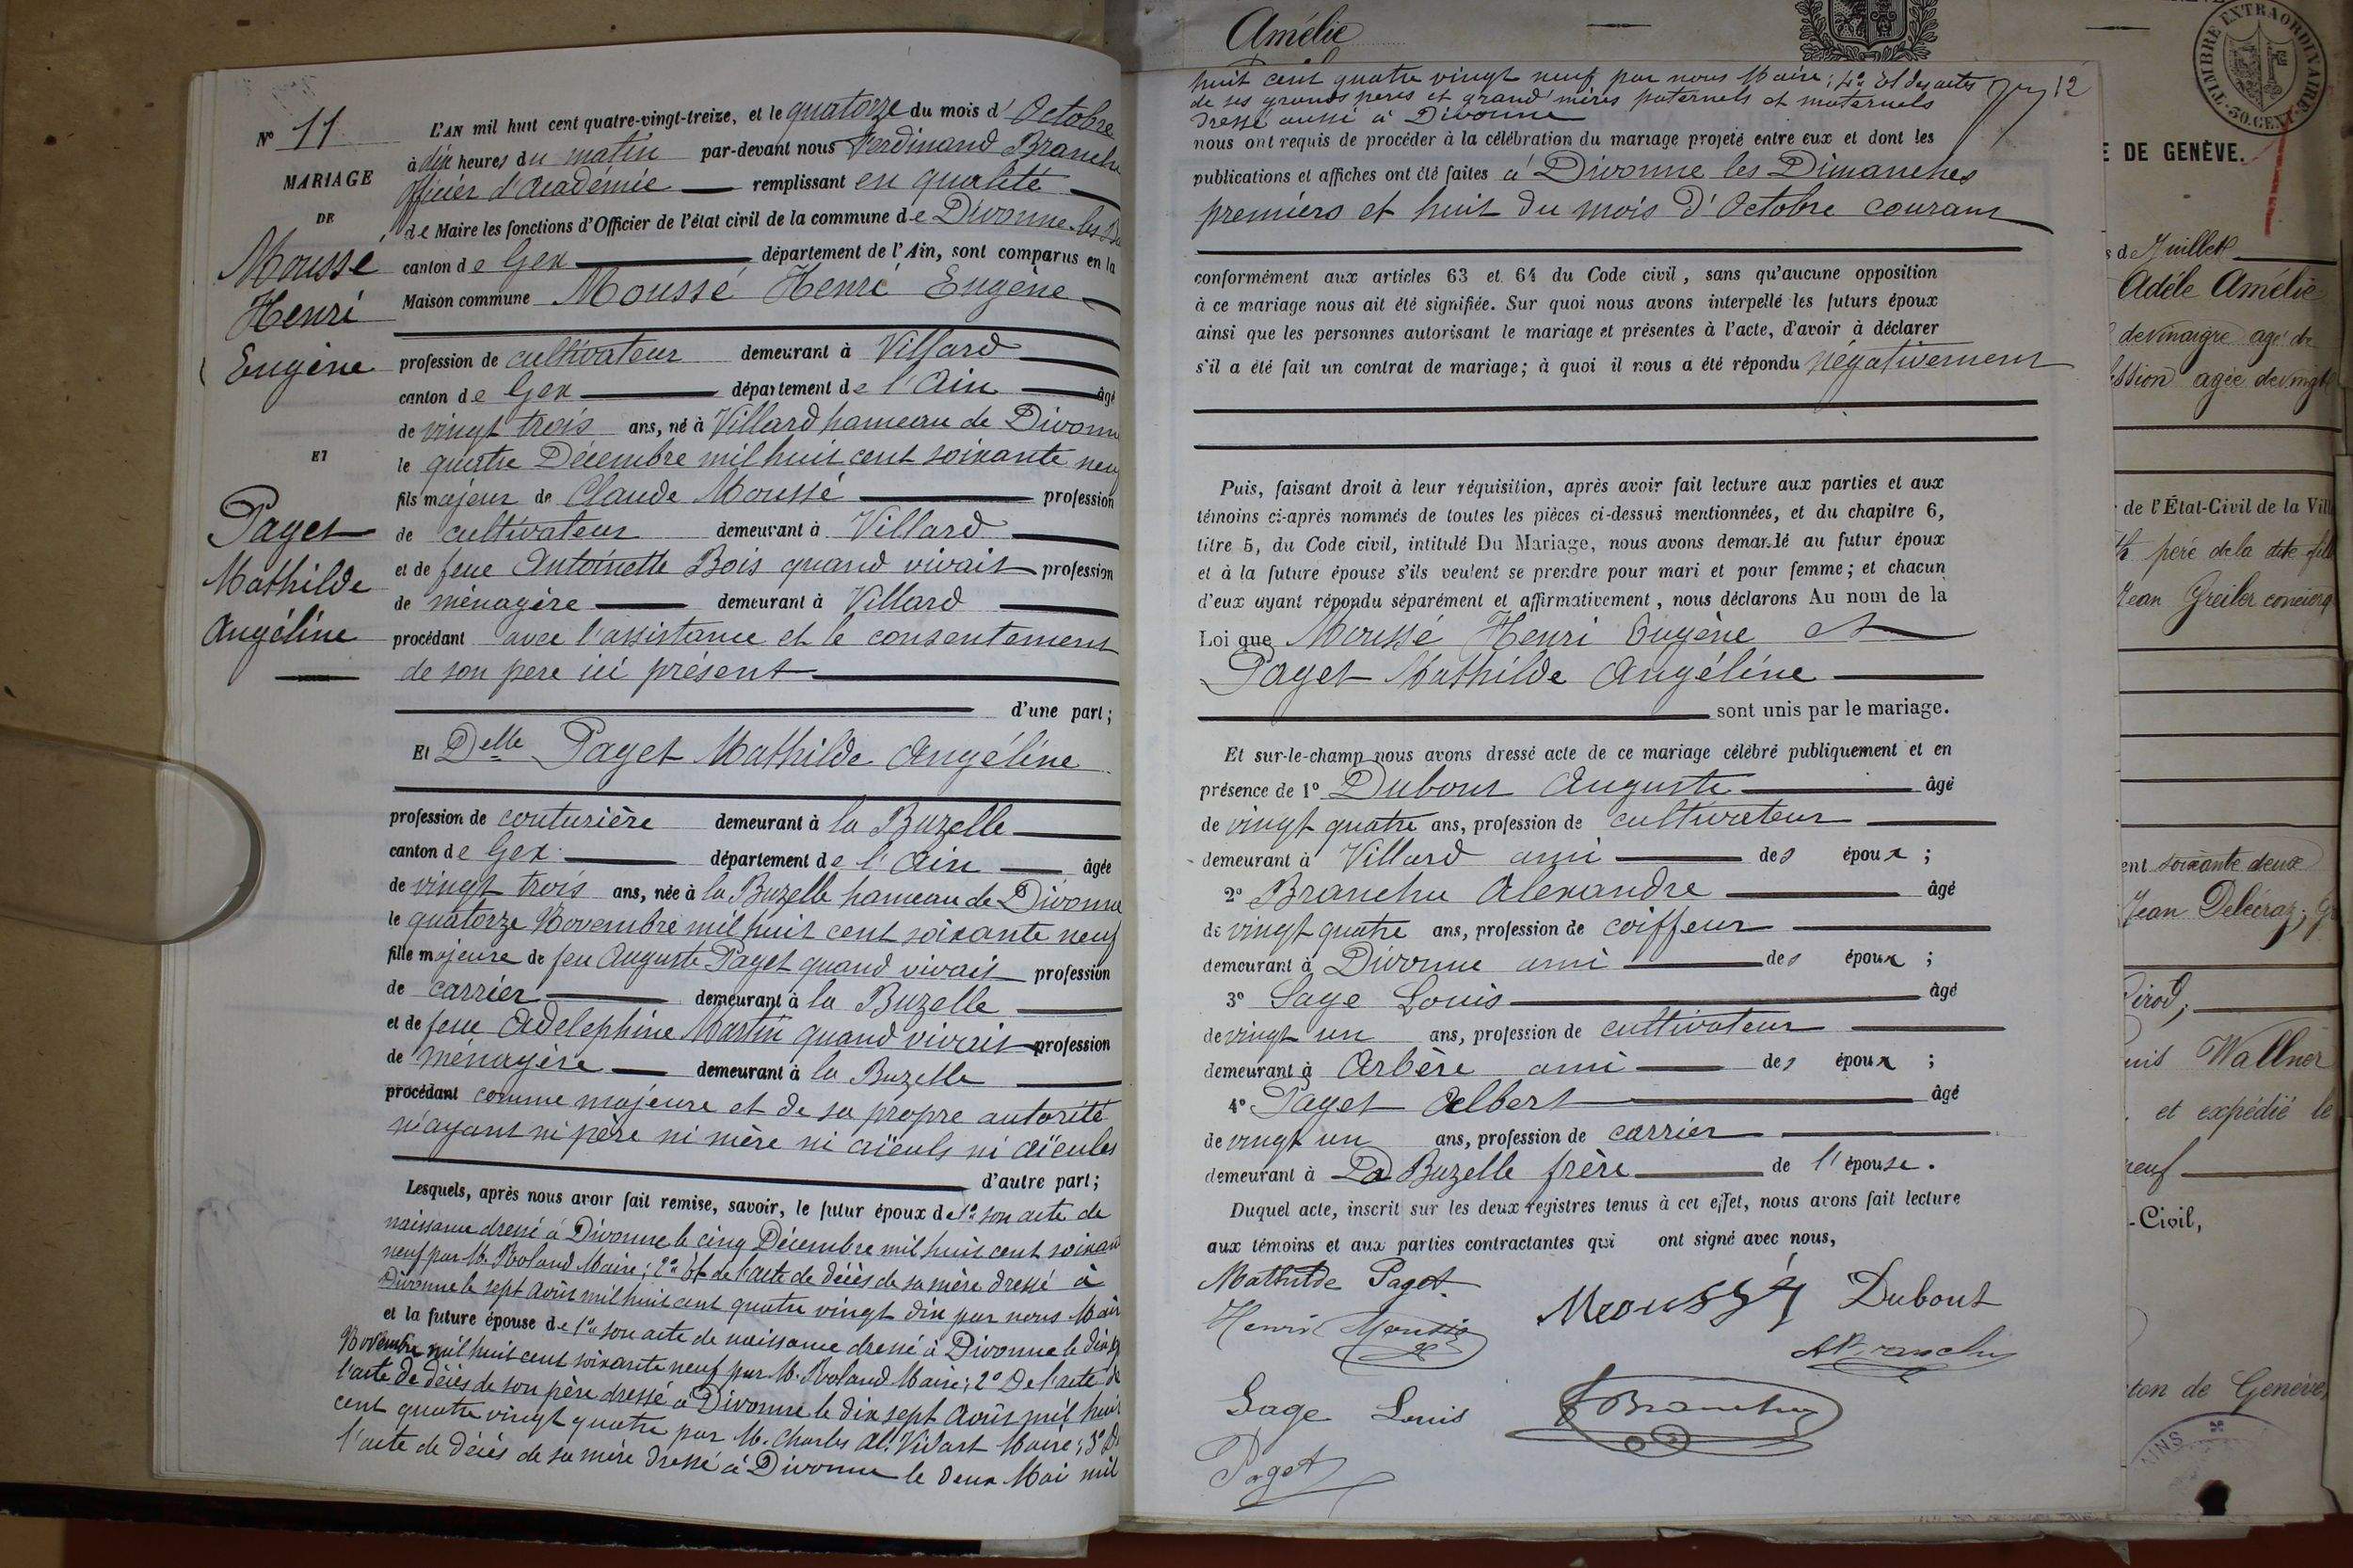 N° 11
MARIAGE
DE
Moussé
Henri
Eugène
ET
Paget
Mathilde
Angéline
L'AN mil huit cent quatre-vingt-treize, et le quatorze du mois d'Octobre
à dix heures du matin par-devant nous Ferdinand Branchu
officier d'académie remplissant en qualité
de Maire les fonctions d'Officier de l'état civil de la commune de Divonne-les-
canton de Gex département de l'Ain, sont comparus en la
Maison commune Moussé Henri Eugène
profession de cultivateur demeurant à Villard
canton de Gex département de l'Ain âgé
de vingt trois ans, né à Villard hameau de Divonne
le quatre Décembre mil huit cent soixante neuf
fils majeur de Claude Moussé profession
de cultivateur demeurant à Villard
et de feue Antoinette Bois quand vivait profession
de ménagère demeurant à Villard
procédant avec l'assistance et le consentement
de son père ici présent
d'une part;
Et Delle Paget Mathilde Angéline
profession de couturière demeurant à la Buzelle
canton de Gex département de l'Ain âgée
de vingt trois ans, née à la Buzelle hameau de Divonne
le quatorze Novembre mil huit cent soixante neuf
fille majeure de feu Auguste Paget quand vivait profession
de carrier demeurant à la Buzelle
et de feue Adelephine Martin quand vivait profession
de ménagère demeurant à la Buzelle
procédant comme majeure et de sa propre autorité
n'ayant ni père ni mère ni aïeuls ni aïeules
d'autre part;
Lesquels, après nous avoir fait remise, savoir, le futur époux de 1° son acte de
naissance dressé à Divonne le cinq Décembre mil huit cent soixante
neuf par M. Roland Maire; 2° et de l'acte de décès de sa mère dressé à
Divonne le sept Août mil huit cent quatre vingt dix par nous Maire
et la future épouse de 1° son acte de naissance dressé à Divonne le
Novembre mil huit cent soixante neuf par M. Roland Maire; 2° De l'acte de
l'acte de décès de son père dressé à Divonne le dix sept Août mil huit
cent quatre vingt quatre par M. Charles Al. Vidart Maire; 3° De
l'acte de décès de sa mère dressé à Divonne le deux Mai mil
Amélie
huit cent quatre vingt neuf par nous Maire; 4° Et des actes
de ses grands pères et grand'mères paternels et maternels
dressé aussi à Divonne
12
nous ont requis de procéder à la célébration du mariage projeté entre eux et dont les
publications et affiches ont été faites à Divonne les Dimanches
premiers et huit du mois d'Octobre courant
conformément aux articles 63 et 64 du Code civil, sans qu'aucune opposition
à ce mariage nous ait été signifiée. Sur quoi nous avons interpellé les futurs époux
ainsi que les personnes autorisant le mariage et présentes à l'acte, d'avoir à déclarer
s'il a été fait un contrat de mariage; à quoi il nous a été répondu négativement
Puis, faisant droit à leur réquisition, après avoir fait lecture aux parties et aux
témoins ci-après nommés de toutes les pièces ci-dessus mentionnées, et du chapitre 6,
titre 5, du Code civil, intitulé Du Mariage, nous avons demandé au futur époux
et à la future épouse s'ils veulent se prendre pour mari et pour femme; et chacun
d'eux ayant répondu séparément et affirmativement, nous déclarons Au nom de la
Loi que Moussé Henri Eugène et
Paget Mathilde Angéline
sont unis par le mariage.
Et sur-le-champ nous avons dressé acte de ce mariage célébré publiquement et en
présence de 1° Dubout Auguste âgé
de vingt quatre ans, profession de cultivateur
demeurant à Villard ami des époux;
2° Branchu Alexandre âgé
de vingt quatre ans, profession de coiffeur
demeurant à Divonne ami des époux;
3° Sage Louis âgé
de vingt un ans, profession de cultivateur
demeurant à Arbère ami des époux;
4° Paget Albert âgé
de vingt un ans, profession de carrier
demeurant à La Buzelle frère de l'épouse.
Duquel acte, inscrit sur les deux registres tenus à cet effet, nous avons fait lecture
aux témoins et aux parties contractantes qui ont signé avec nous,
Mathilde Paget
Henri Moussé Moussé Dubout
A Branchu
Sage Louis F Branchu
Paget
TIMBRE EXTRAORDINAIRE
30 CENT.
E DE GENÈVE.
s de Juillet
Adèle Amélie
de vinaigre agé de
ession agée de vingt
de l'État-Civil de la Vill
père de la dite fille
Jean Greiler concierg
ent soixante deux
Jean Deléeraz,
Pirod,
uis Wallner
et expédié le
neuf
-Civil,
ton de Genève,